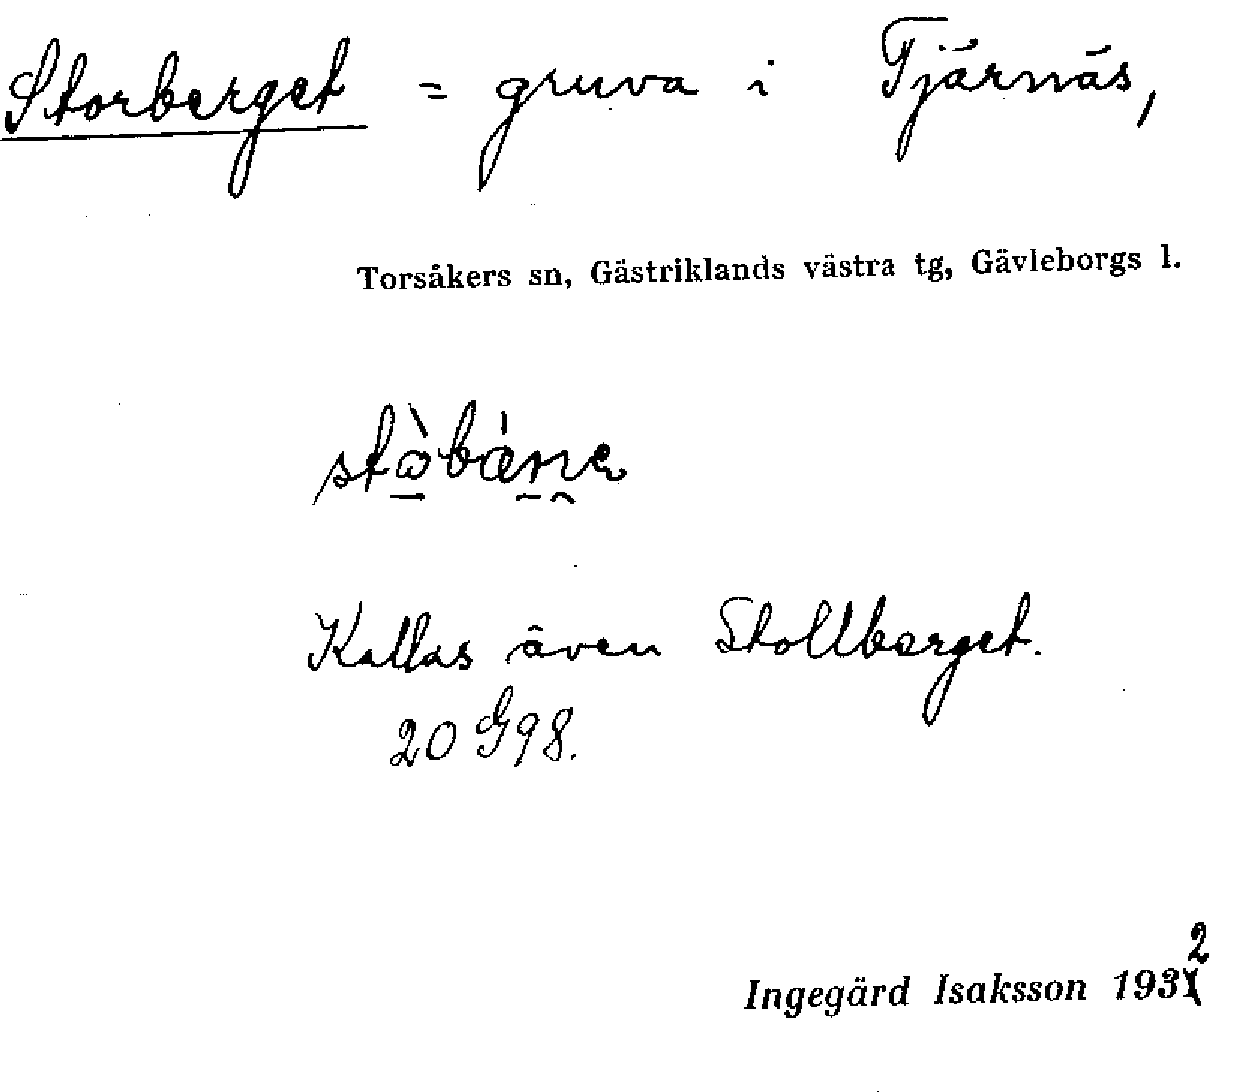 Storberget = gruva i Tjärnäs,
Torsåkers sn, Gästriklands västra tg, Gävleborgs l.
Kallas även Stollberget.
20 G 98.
Ingegärd Isaksson 1932